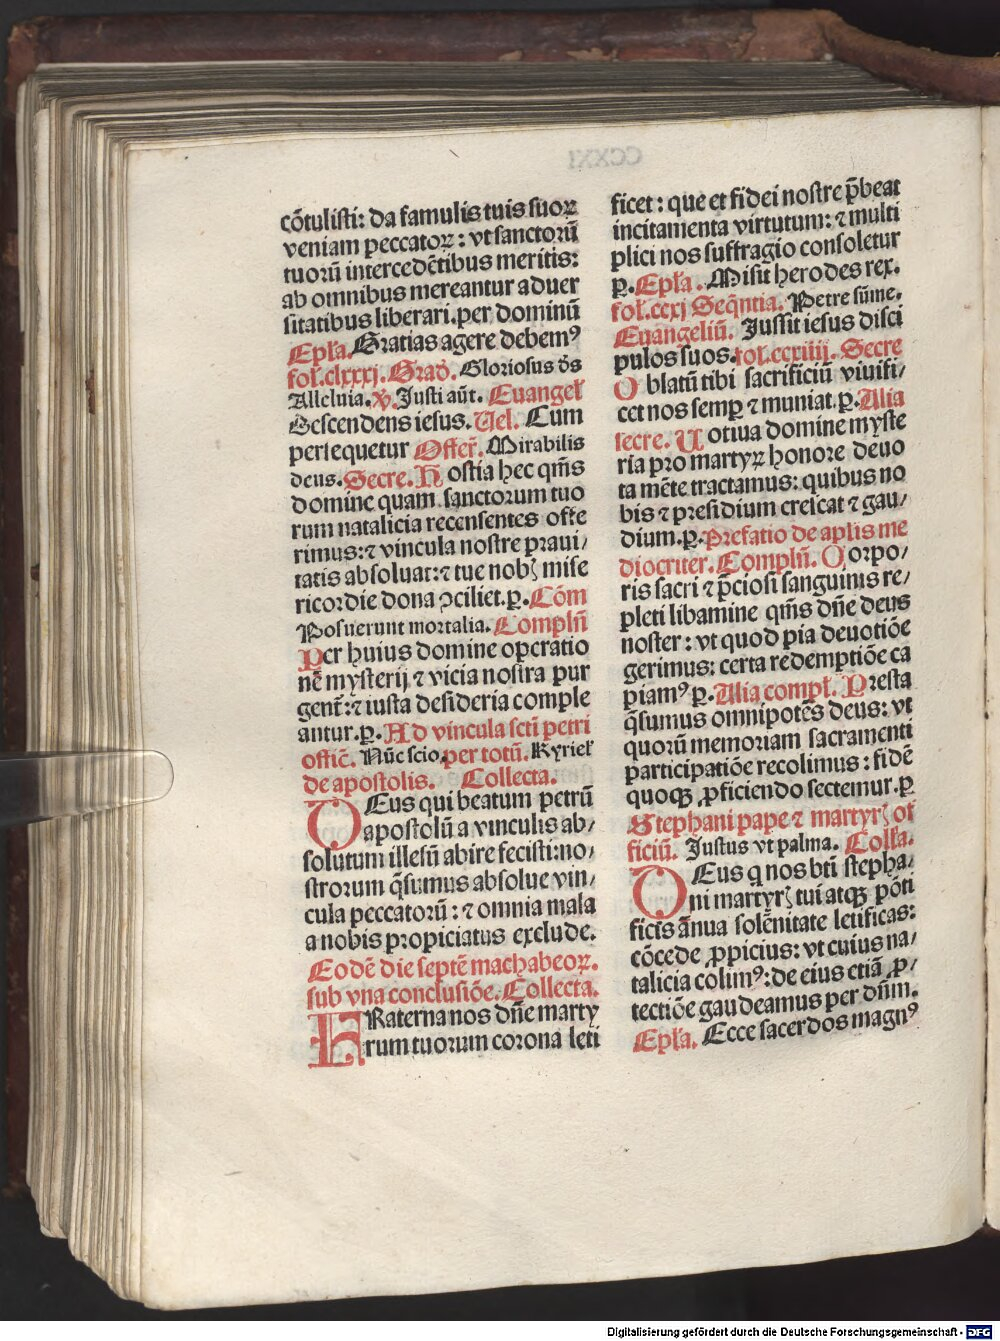 cõtulisti: da famulis tuis suoꝝ
veniam peccatoꝝ: vt sanctorũ
tuorũ intercedẽtibus meritis:
ab omnibus mereantur aduer
sitatibus liberari. per dominũ
Epl̃a. Gratias agere debemꝰ
fol̃. clxxxj. Grad̃. Gloriosus d̃s
Alleluia. ℣. Justi aũt. Euangel̃
Descendens iesus. Uel. Cum
persequetur Offer̃. Mirabilis
deus. Secre. Hostia hec q̃m̃s
domine quam sanctorum tuo
rum natalicia recensentes offe
rimus: ⁊ vincula nostre praui/
tatis absoluat: ⁊ tue nobꝭ mise
ricordie dona ꝯciliet. ꝑ. Cõm
Posuerunt mortalia. Complñ
Per huius domine operatio
nẽ mysterij ⁊ vicia nostra pur
gent̃: ⁊ iusta desideria comple
antur. ꝑ. Ad vincula sctĩ petri
officĩ. Nũc scio. per totũ. Kyriel̃
de apostolis. Collecta.
DEus qui beatum petrũ
apostolũ a vinculis ab/
solutum illesũ abire fecisti: no/
strorum q̃sumus absolue vin/
cula peccatorũ: ⁊ omnia mala
a nobis propiciatus exclude.
Eodẽ die septẽ machabeoꝝ.
sub vna conclusiõe. Collecta.
FRaterna nos dñe marty
rum tuorum corona leti
ficet: que et fidei nostre p̃beat
incitamenta virtutum: ⁊ multi
plici nos suffragio consoletur
ꝑ. Epl̃a. Misit̃ herodes rex.
fol̃. ccxj Seq̃ntia. Petre sũme.
Euangeliũ. Jussit iesus disci
pulos suos. fol̃. ccxiiij. Secre
Oblatũ tibi sacrificiũ viuifi/
cet nos semꝑ ⁊ muniat. ꝑ. Alia
secre. Uotiua domine myste
ria pro martyrꝝ honore deuo
ta mẽte tractamus: quibus no
bis ⁊ presidium crescat ⁊ gau/
dium. ꝑ. Prefatio de aplĩs me
diocriter. Complñ. Corpo/
ris sacri ⁊ p̃ciosi sanguinis re/
pleti libamine q̃m̃s dñe deus
noster: vt quod pia deuotiõe
gerimus: certa redemptiõe ca
piamꝰ ꝑ. Alia compl̃. Presta
q̃sumus omnipotẽs deus: vt
quorũ memoriam sacramenti
participatiõe recolimus: fidẽ
quoqꝫ ꝓficiendo sectemur. ꝑ
Stephani pape ⁊ martyrꝭ of
ficiũ. Justus vt palma. Coll̃a.
DEus q̃ nos bt̃i stepha/
ni martyrꝭ tui atqꝫ põti
ficis ãnua solẽnitate letificas:
cõcede ꝓpicius: vt cuius na/
talicia colimꝰ: de eius etiã ꝓ/
tectiõe gaudeamus per dñm.
Epl̃a. Ecce sacerdos magnꝰ
Digitalisierung gefördert durch die Deutsche Forschungsgemeinschaft - DFG